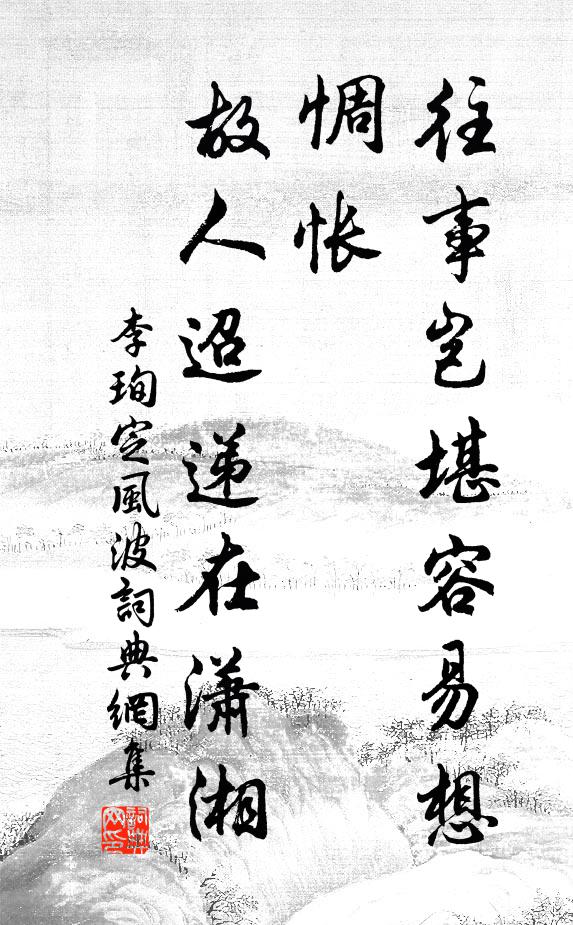 往事岂堪容易想
惆怅
故人迢递在潇湘
李珣定風波詞典網集